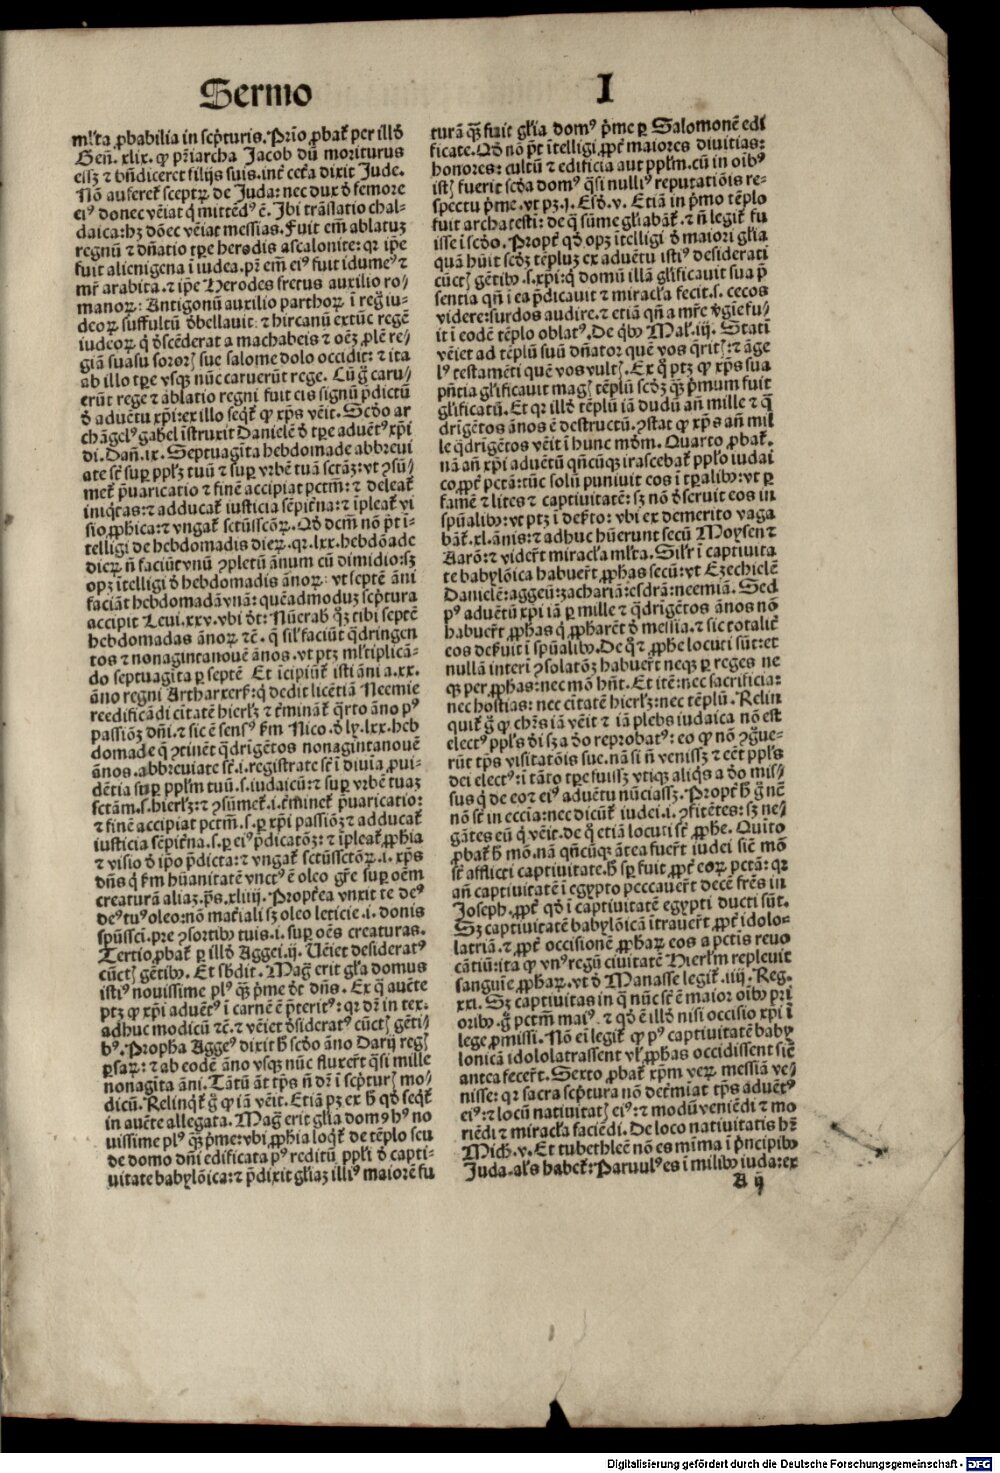 Sermo I
ml'ta ꝓbabilia in scp̄turis. Prīo ꝓbat͛ per illḋ
Gen̄. xlix. ꝙ pr̄iarcha Jacob dū moriturus
eſſꝫ ⁊ bn̄diceret filijs suis. int͛ cet͛a dixit Jude.
Nō auferet͛ sceptꝝ de Juda: nec dux ḋ femore
eiꝰ donec vēiat q̇ mittēdꝰ ē. Ibi trāslatio chal-
daica: hꝫ dōec vēiat messias. Fuit em̄ ablatuꝫ
regnū ⁊ dn̄atio tꝑe herodis ascalonite: qꝛ ip̄e
fuit alienigena ī iudea. pr̄ em̄ eiꝰ fuit idumeꝰ ⁊
mr̄ arabita. ⁊ ip̄e Herodes fretus auxilio ro-
manoꝝ: Antigonū auxilio parthoꝝ ī reg̊ iu-
deoꝝ suffultū ḋbellauit: ⁊ hircanū extūc regē
iudeoꝝ q̇ ḋscēderat a machabeis ⁊ oēꝫ ꝓlē re/
giā suasu sororꝭ sue salome dolo occidit: ⁊ ita
ab illo tꝑe vsqꝫ nūc caruerūt rege. Cū g̊ caru/
erūt rege ⁊ ablatio regni fuit eis signū p̄dictū
ḋ aduētu xp̄i: ex illo seqt͛ ꝙ xp̄s vēit. Scḋo ar
chāgelꝰ gabel īstruxit Danielē ḋ tꝑe aduētꝰ xp̄i
di. Dan̄. ix. Septuagīta hebdomade abbreui
ate sc̄ suꝑ pplꝫ tuū ⁊ suꝑ vrbē tuā sctāꝫ: vt ꝯsū-
met͛ p̄uaricatio ⁊ finē accipiat pctm̄: ⁊ deleat͛
iniq̇tas: ⁊ adducat͛ iusticia sēpit͛na: ⁊ īpleat͛ vi
sio ꝓphica: ⁊ vngat͛ sctūssctōꝝ. Qḋ dcm̄ nō p̄t ī-
telligi de hebdomadis dieꝝ. qꝛ. lxx. hebdōade
dieꝝ n̄ faciūt vnū ꝯpletū ānum cū dimidio: sꝫ
opꝫ ītelligi ḋ hebdomadis ānoꝝ: vt septē āni
faciāt hebdomadā vnā: quēadmoduꝫ scp̄tura
accipit Leui. xxv. vbi ḋt: Nūerab q̄ꝫ tibi septē
hebdomadas ānoꝝ ⁊c̄. q̄ sil' faciūt q̇dringen
tos ⁊ nonagintanouē ānos. vt ptꝫ ml'tiplicā-
do septuagīta ꝑ septē Et īcipiūt͛ isti āni a. xx.
āno regni Artharxers͛: q̇ dedit licētiā Neemie
reedificādi citatē hierl'ꝫ ⁊ t͛minat͛ q̇rto āno pꝰ
passiōꝫ dn̄i. ⁊ sic ē sensꝰ fm̄ Nico. ḋ ly. lxx. heb
domade q̄ ꝯtinēt q̇dringētos nonagintanouē
ānos. abbreuiate sc̄. i. registrate sc̄ ī diuīa ꝓui-
dētia suꝑ pplm̄ tuū. s. iudaicū: ⁊ suꝑ vrbē tuaꝫ
sctām. s. hierl'ꝫ: ⁊ ꝯsūmet͛. i. t͛minet͛ p̄uaricatio:
⁊ finē accipiat pctm̄. s. ꝑ xp̄i passiōꝫ ⁊ adducat͛
iusticia sēpit͛na. s. ꝑ eiꝰ p̄dicatōꝫ: ⁊ īpleat͛ ꝓphia
⁊ visio ḋ ip̄o p̄dicta: ⁊ vngat͛ sctūssctōꝝ. i. xp̄s
dn̄s q̇ fm̄ hūanitatē vnctꝰ ē oleo gr̄e suꝑ oēm
creaturā aliaꝫ. ps̄. xliiij. Propt͛ea vnxit te deꝰ
deꝰ tuꝰ oleo: nō mat͛iali sꝫ oleo leticie. i. donis
spūssci̅. pre ꝯsortibꝰ tuis. i. suꝑ oēs creaturas.
Tertio ꝓbat͛ ꝑ illḋ Aggei. ij. Uēiet desideratꝰ
cūctꝭ gētibꝰ. Et sb̄dit. Mag̊ erit gl'a domus
istiꝰ nouissime plꝰ q̄ꝫ p̄me ḋt dn̄s. Ex q̇ auc̄te
ptꝫ ꝙ xp̄i aduētꝰ ī carnē ē p̄teritꝰ: qꝛ dr̄ in tex.
adhuc modicū ⁊c̄. ⁊ vēiet ḋsideratꝰ cūctꝭ gēti/
bꝰ. Propha Aggeꝰ dixit h̄ scḋo āno Darij regꝭ
ꝑsaꝝ: ⁊ ab eodē āno vsqꝫ nūc fluxer̄t q̇si mille
nonagīta āni. Tātū āt tp̄s n̄ dr̄ ī scp̄turꝭ mo/
dicū. Relinq̇t͛ g̊ ꝙ iā vēit. Etiā pꝫ ex h̄ qḋ seqt͛
in auc̄te allegata. Mag̊ erit gl'ia domꝰ hꝰ no
uissime plꝰ q̄ꝫ p̄me: vbi ꝓphia loq̇t͛ de tēplo seu
de domo dn̄i edificata pꝰ reditū ppl'i ḋ capti-
uitate babylōica: ⁊ p̄dixit gl'iaꝫ illiꝰ maiorē fu
turā q̄ꝫ fuit gl'ia domꝰ p̄me ꝑ Salomonē edi
ficate. Qḋ nō p̄t ītelligi ꝓpt͛ maiores diuitias:
honores: cultū ⁊ edificia aut pplm̄. cū in oībꝰ
istꝭ fuerit scḋa domꝰ q̇si nulliꝰ reputatiōis re-
spectu p̄me. vt pꝫ. j. Esḋ. v. Etiā in p̄mo tēplo
fuit archa testi: de q̄ sūme gl'iabāt͛. ⁊ n̄ legit͛ fu
isse ī scḋo. Propt͛ qḋ opꝫ ītelligi ḋ maiori gl'ia
quā hūit scḋꝫ tēpluꝫ ex aduētu istiꝰ desiderati
cūctꝭ gētibꝰ. s. xp̄i: q̇ domū illā gl'ificauit sua p̄
sentia qn̄ ī ea p̄dicauit ⁊ miracl'a fecit. s. cecos
videre: surdos audire. ⁊ etiā qn̄ a mr̄e v͛gīe fu/
it ī eodē tēplo oblatꝰ. De q̇bꝰ Mal'. iij. Stati
vēiet ad tēplū suū dn̄ator quē vos q̄ritꝭ: ⁊ āge
lꝰ testamēti quē vos vultꝭ. Ex q̇ ptꝫ ꝙ xp̄s sua
pn̄tia gl'ificauit magꝭ tēplū scḋꝫ q̄ꝫ p̄mum fuit
gl'ificatū. Et qꝛ illḋ tēplū iā dudū an̄ mille ⁊ q̇
drīgētos ānos ē destructū. ꝯstat ꝙ xp̄s an̄ mil
le q̇drīgētos vēit ī hunc mḋm. Quarto ꝓbat͛.
nā an̄ xp̄i aduētū qn̄cūqꝫ irascebat͛ ppl'o iudai
co ꝓpt͛ pctā: tūc solū puniuit eos ī tꝑalibꝰ: vt ꝑ
famē ⁊ lites ⁊ captiuitatē: sꝫ nō ḋseruit eos in
spūalibꝰ: vt ptꝫ ī deḟto: vbi ex demerito vaga
bāt͛. xl. ānis: ⁊ adhuc hūerunt secū Moysen ⁊
Aarō: ⁊ vider̄t miracl'a ml'ta. Sil'r ī captiuita
te babylōica habuer̄t ꝓphas secū: vt Ezechielē
Danielē: aggeū: zachariā: esdrā: neemiā. Sed
pꝰ aduētū xp̄i iā ꝑ mille ⁊ q̇drīgētos ānos nō
habuer̄t ꝓphas q̇ ꝓpharēt ḋ messia. ⁊ sic totalit͛
eos deẜuit ī spūalibꝰ. De q̇ ⁊ ꝓphe locuti sūt: et
nullā interī ꝯsolatōꝫ habuer̄t neqꝫ ꝑ reges ne
qꝫ per ꝓphas: nec mō hn̄t. Et itē: nec sacrificia:
nec hostias: nec citatē hierl'ꝫ: nec tēplū. Relin
quit͛ g̊ ꝙ chr̄s iā vēit ⁊ iā plebs iudaica nō est
electꝰ ppl's ḋi sꝫ a ḋo reprobatꝰ: eo ꝙ nō ꝯg̊ue-
rūt tp̄s visitatōis sue. nā si n̄ venissꝫ ⁊ eēt ppl's
dei electꝰ: ī tāto tꝑe fuissꝫ vtiqꝫ aliq̇s a ḋo mis/
sus q̇ de eo ⁊ eiꝰ aduētu nūciassꝫ. Propt͛ h̄ g̊ nē
nō sc̄ in eccīa: nec dicūt͛ iudei. i. ꝯfitētes: sꝫ ne/
gātes eū q̇ vēit. de q̇ etiā locuti sc̄ ꝓphe. Quīto
ꝓbat͛ h̄ mō. nā qn̄cūqꝫ ātea fuer̄t iudei siē mō
sc̄ afflicti captiuitate. h̄ sꝑ fuit ꝓpt͛ eoꝝ pctā: qꝛ
an̄ captiuitatē ī egypto peccauer̄t decē fr̄es in
Joseph. ꝓpt͛ qḋ ī captiuitatē egypti ducti sūt.
Sꝫ captiuitatē babylōicā ītrauer̄t ꝓpt͛ idolo-
latriā. ⁊ ꝓpt͛ occisionē ꝓphaꝝ eos a pctīs reuo
cātiū: ita ꝙ vnꝰ regū ciuitatē Hierl'm repleuit
sanguīe ꝓphaꝝ. vt ḋ Manasse legit͛. iiij. Reg.
xxi. Sꝫ captiuitas in q̄ nūc sc̄ ē maior oībꝰ pri
oribꝰ. g̊ pctm̄ maiꝰ. ⁊ qḋ ē illḋ nisi occisio xp̄i ī
lege ꝓmissi. Nō ei legit͛ ꝙ pꝰ captiuitatē baby
lonicā idololatrassent vl' ꝓphas occidissent siē
antea fecer̄t. Sexto ꝓbat͛ xp̄m veꝝ messiā ve/
nisse: qꝛ sacra scp̄tura nō det͛miat tp̄s aduētꝰ
eiꝰ: ⁊ locū natiuitatꝭ eiꝰ: ⁊ modū veniēdi ⁊ mo
riēdi ⁊ miracl'a faciēdi. De loco natiuitatis hr̄
Mich. v. Et tu bethleē nō es mīma ī p̄ncipibꝰ
Juda. al's habet͛: Paruulꝰ es ī milibꝰ iuda: ex
A ij
Digitalisierung gefördert durch die Deutsche Forschungsgemeinschaft - DFG